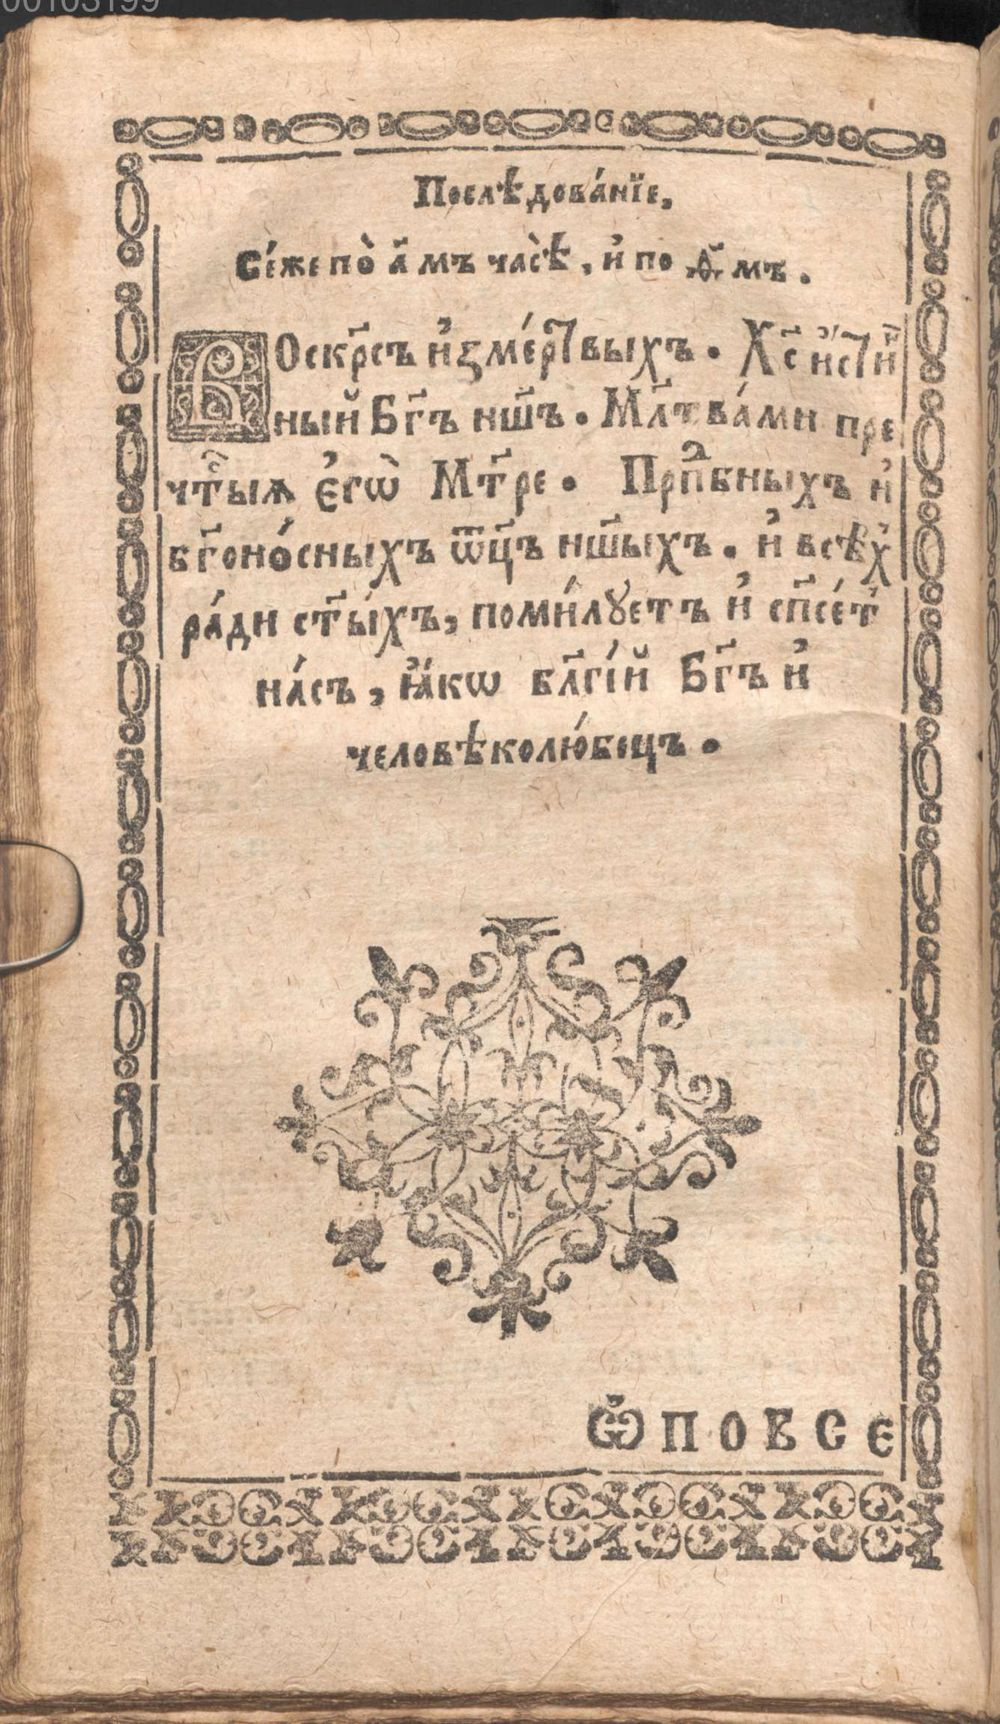 00103199
Послѣдова́нїе,
Се́же по̀ а҃мъ ча́сѣ, и҆ по ,ѳ҃мъ.
Воскр҃съ и҆зме́рт҃выхъ. Хс҃ и҆́ст҃и́н
ный Бг҃ъ нш҃ъ. Мл҃тва́ми пре
чт҃ыѧ є҆гѡ̀ Мт҃ре. Прпⷣбныхъ и҆
бг҃оно́сныхъ ѿц҃ъ нш҃ыхъ. и҆ всѣх҆
ра́ди ст҃ы́хъ, поми́лꙋетъ и҆ сп҃се́т҆
на́съ, ꙗ҆́кѡ бл҃гі́й Бг҃ъ и҆
человѣколю́бецъ.
Ѡ҆ПОВСЕ